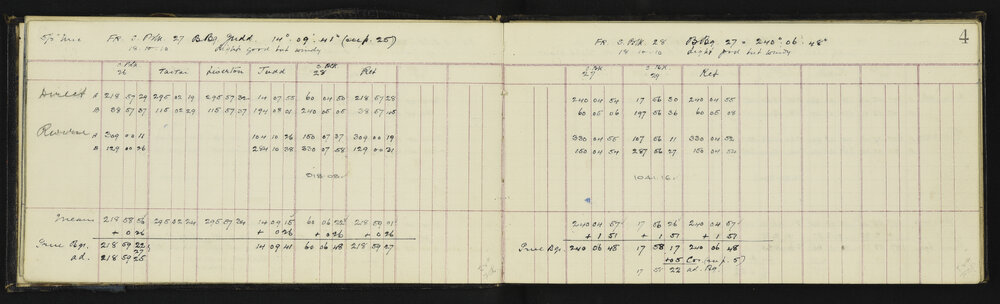 Fr. S. Pk. 27 B.Bg. Judd. 14° 09' 41" (see p. 25)
18-10-10 Light good but windy
S. Pk. 26 Tactai Leverton Judd S. Pk. 28 Ret
Direct A 218 57 29 295 02 19 295 57 32 14 07 55 60 04 50 218 57 28
B 38 57 37 115 02 29 115 57 37 194 08 01 240 05 05 38 57 45
Reverse A 309 00 11 104 10 26 150 07 37 309 00 19
B 129 00 26 284 10 38 330 07 58 129 00 31
018.08.
Mean 218 58 56 295 02 24 295 57 34 14 09 15 60 06 22 218 59 01
+ 0 26 + 0 26 + 0 26 + 0 26
True Bgs. 218 59 22 14 09 41 60 06 48 218 59 27
27
ad. 218 59 25
4
Fr. S. Pk. 28 B.Bg. 27 = 240° 06' 48"
18-10-10 Light good but windy
S. Pk. 27 S. Pk. 29 Ret
240 04 54 17 56 30 240 04 55
60 05 06 197 56 36 60 05 08
330 04 55 107 56 11 330 04 52
150 04 54 287 56 27 150 04 54
1041.16.
240 04 57 17 56 26 240 04 57
+ 1 51 + 1 51 + 1 51
True Bgs. 240 06 48 17 58 17 240 06 48
+05 Cor. (see p. 5)
17 58 22 ad. Bg.